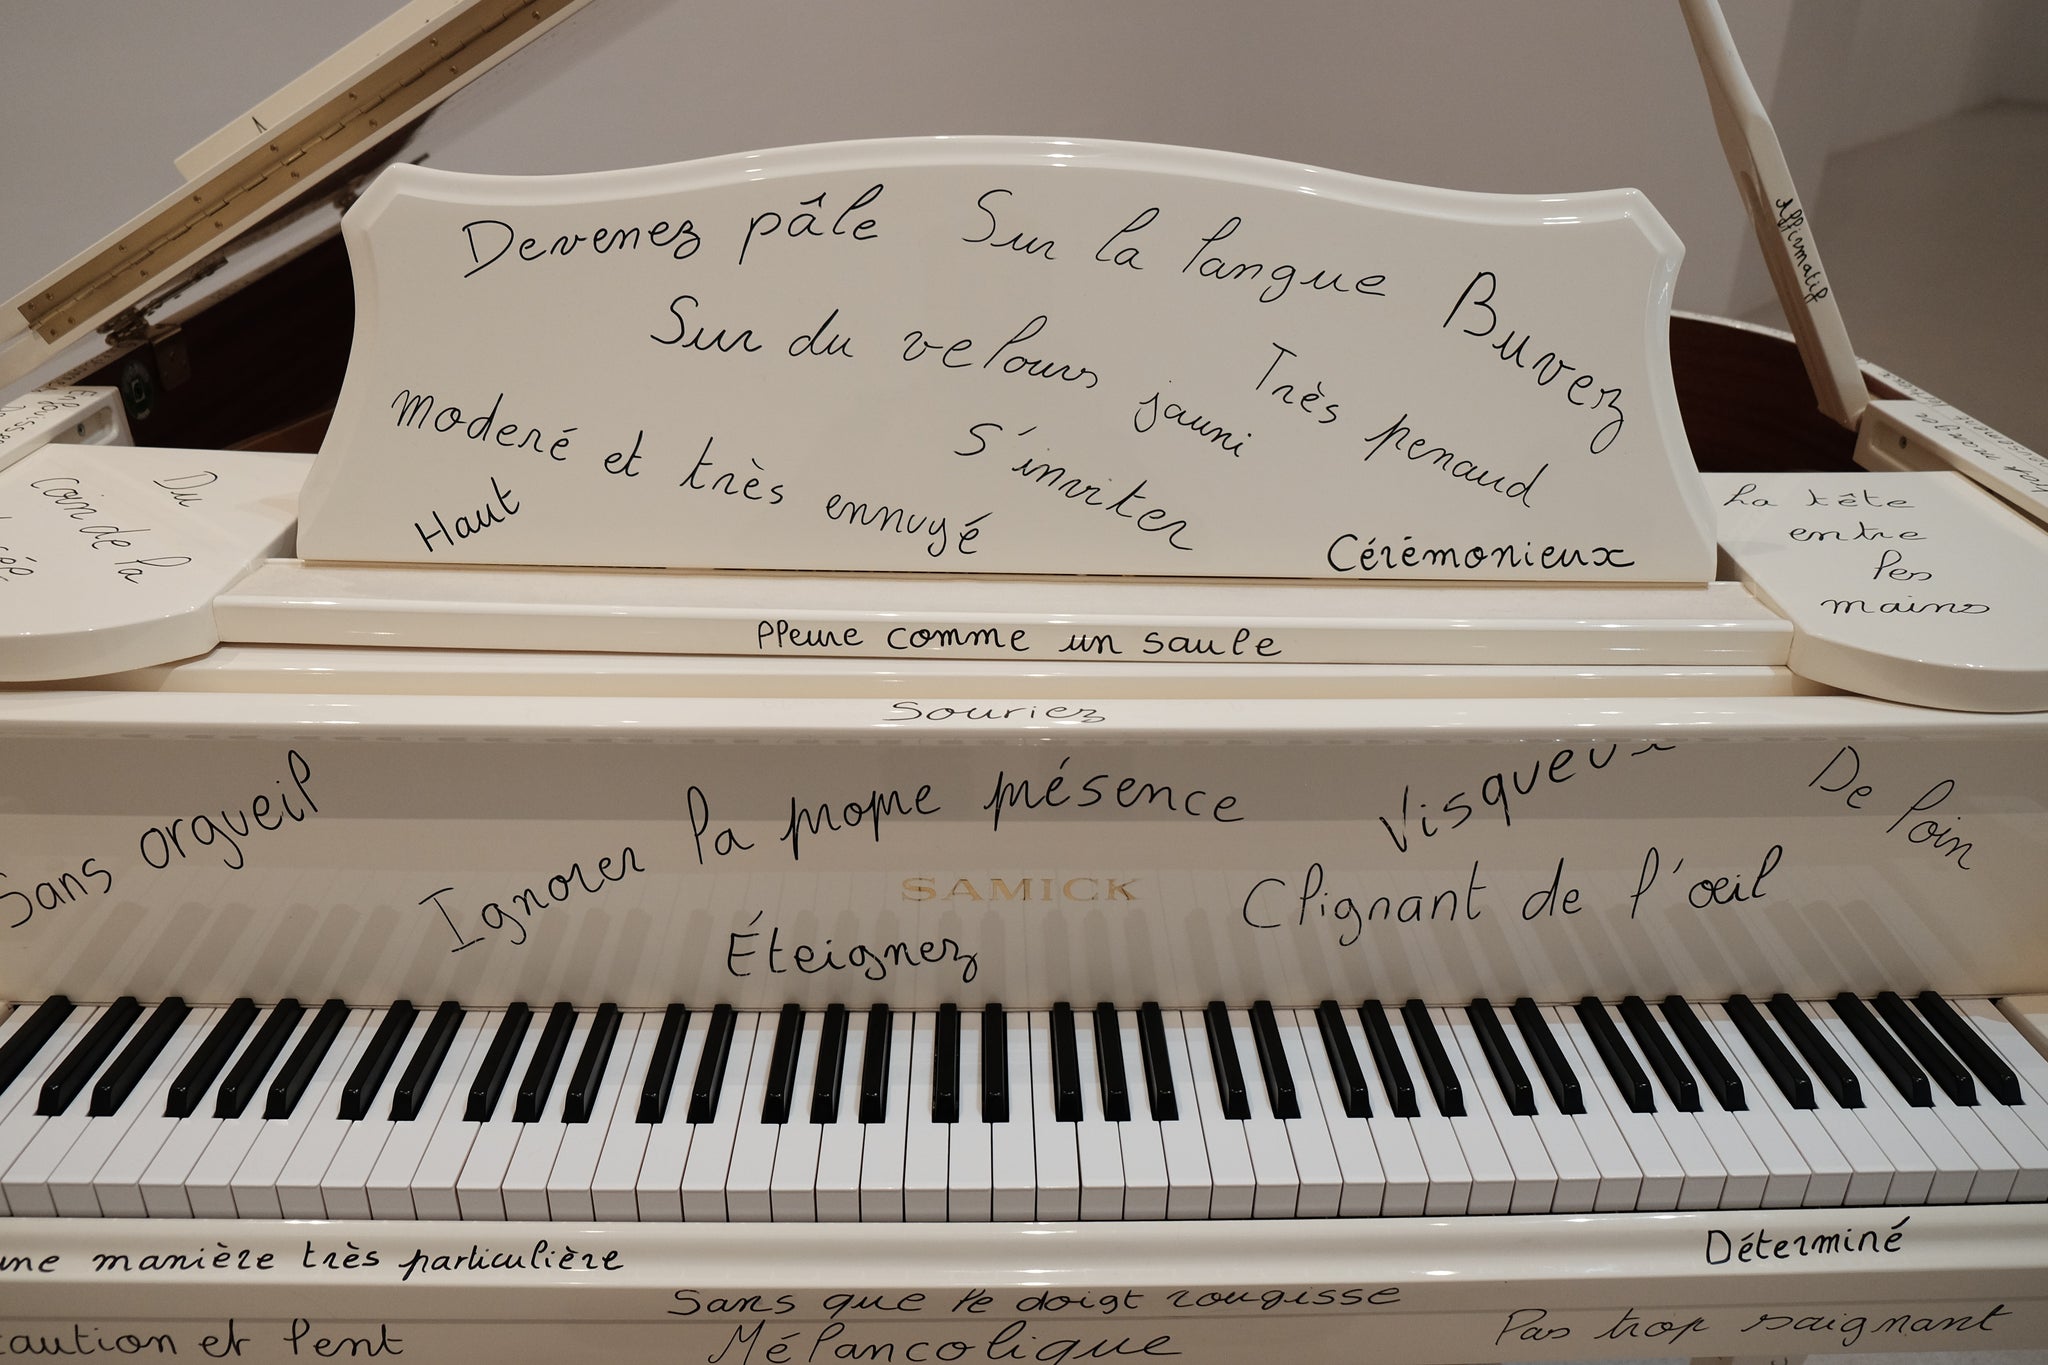 Affirmatif
Devenez pâle
Sur la langue
Buvez
Sur du velours jauni
Très penaud
Moderé et très ennuyé
S'inviter
Haut
Cérémonieux
Du
coin de la
La tête
entre
les
mains
Pleure comme un saule
Souriez
Sans orgueil
Ignorer la propre présence
Visqueux
De loin
SAMICK
Clignant de l'œil
Éteignez
une manière très particulière
Déterminé
Sans que le doigt rougisse
caution et lent
Mélancolique
Pas trop saignant